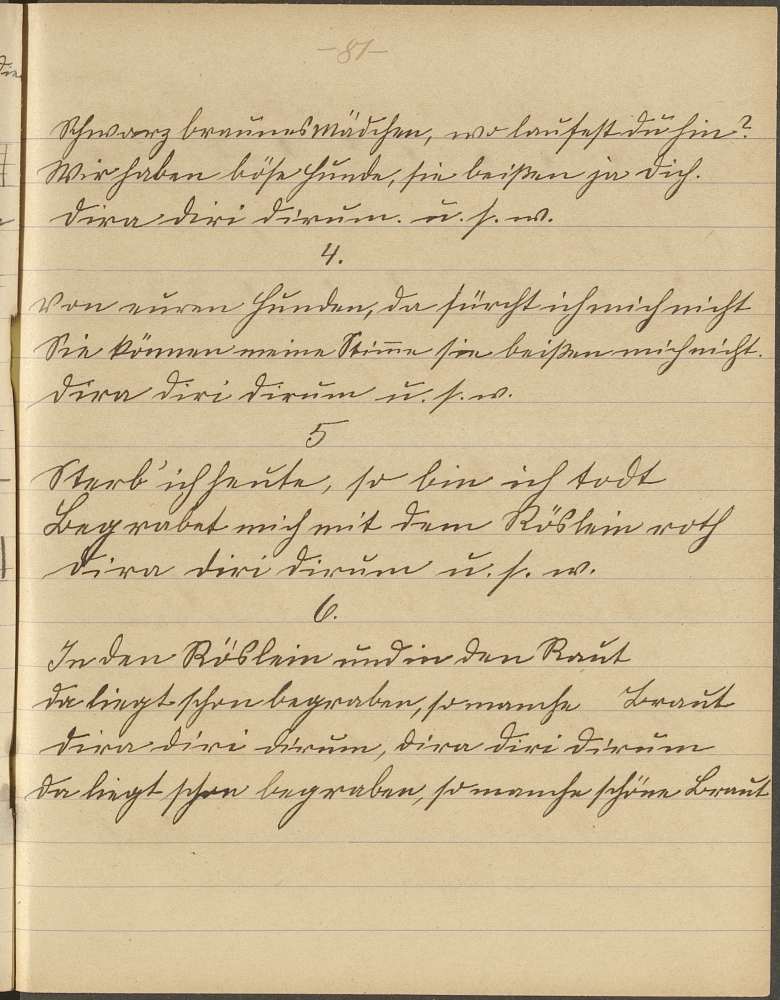 -81-
Schwarzbraunes Mädchen, wo laufest du hin?
Wir haben böse Hunde, sie beißen ja dich.
Dira diri dirum. u. s. w.
4.
Von euren Hunden, da fürcht ich mich nicht
Sie können meine Stimme sie beißen mich nicht.
Dira diri dirum u. s. w.
5
Sterb' ich heute, so bin ich todt
Begrabet mich mit dem Röslein roth
Dira diri dirum u. s. w.
6.
In den Röslein und in den Raut
da liegt schon begraben, so manche Braut
Dira diri dirum, dira diri dirum
Da liegt schon begraben, so manche schöne Braut